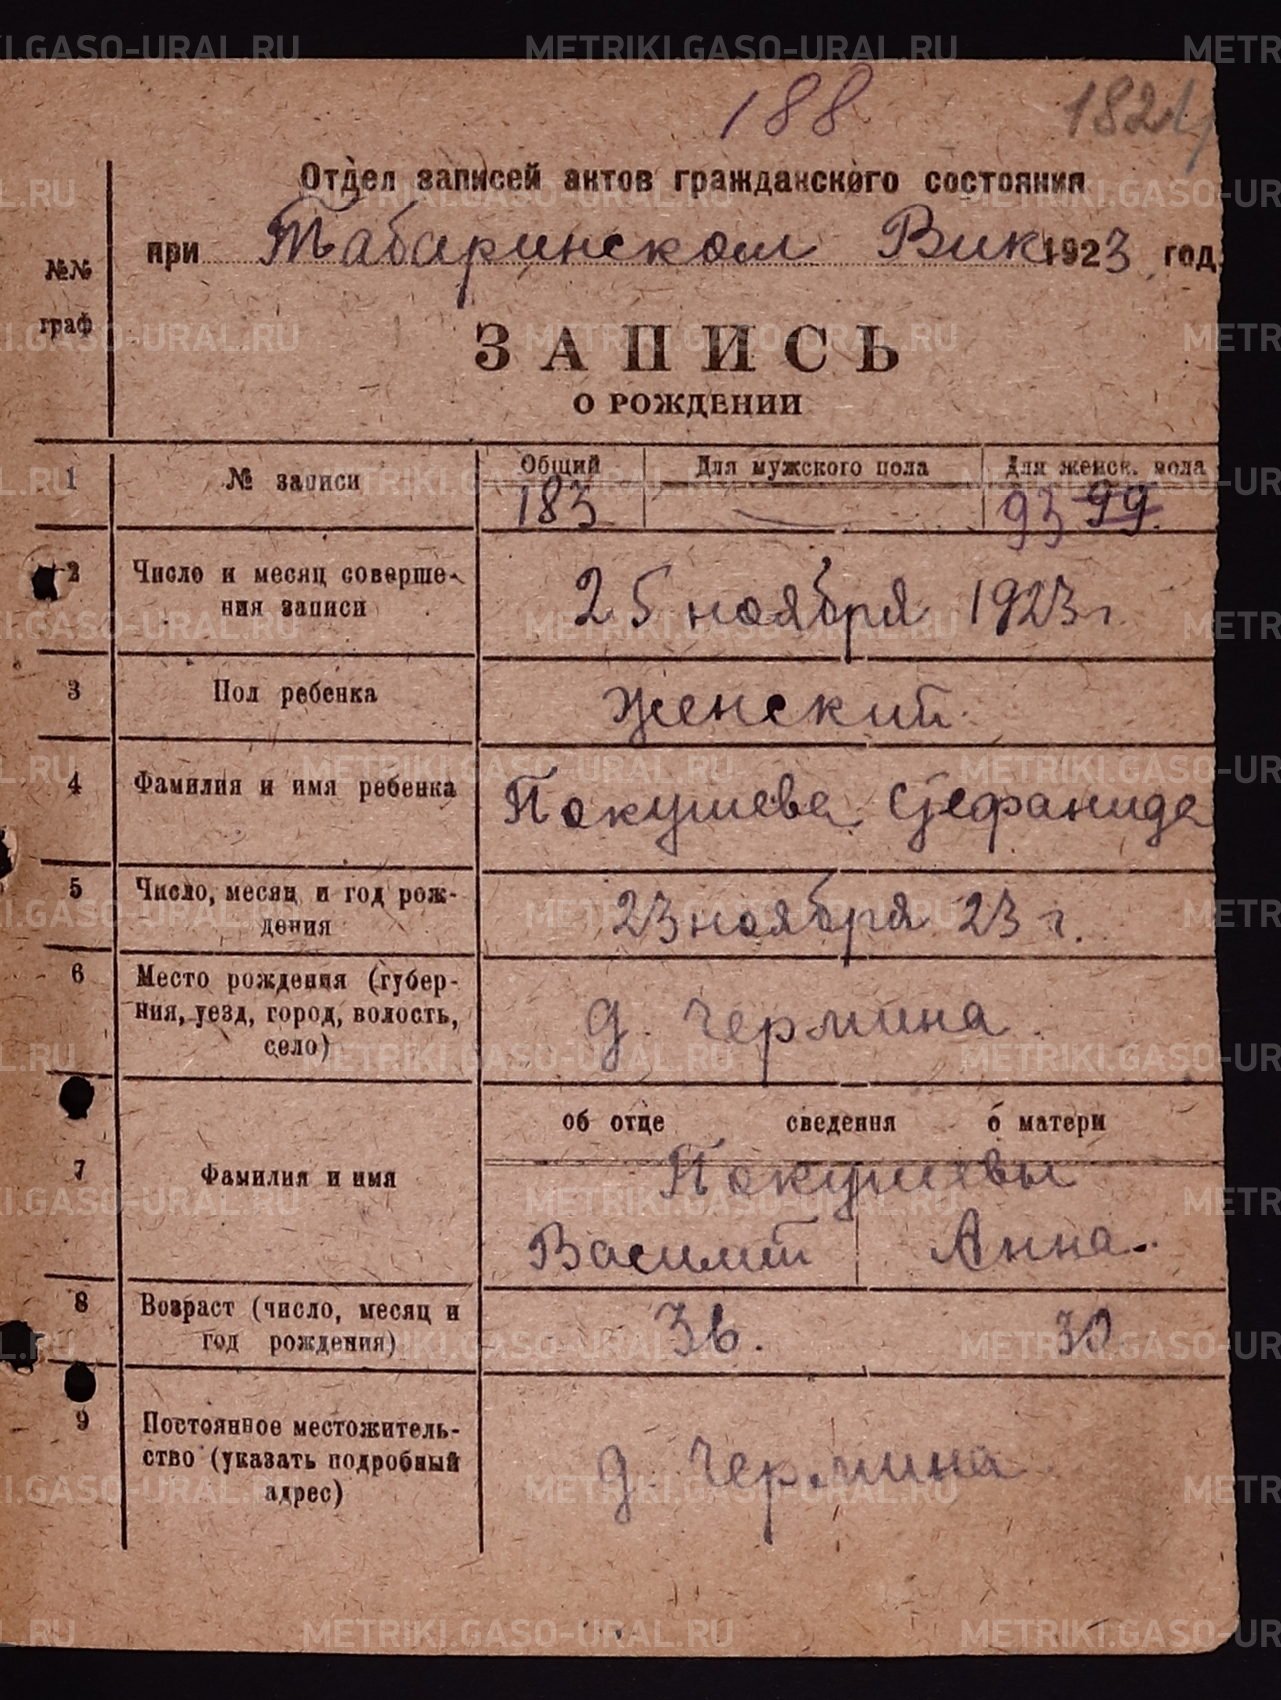 188 182
Отдел записей актов гражданского состояния
при Табаринском Вик 1923 год.
№№ граф
ЗАПИСЬ
О РОЖДЕНИИ
1 № записи Общий Для мужского пола Для женск. пола
183 — 93 99
2 Число и месяц соверше-
ния записи
25 ноября 1923 г.
3 Пол ребенка Женский
4 Фамилия и имя ребенка Покушева Стефанида
5 Число, месяц и год рож-
дения
23 ноября 23 г.
6 Место рождения (губер-
ния, уезд, город, волость,
село)
д. Чермина.
об отце сведения о матери
7 Фамилия и имя Покушевы
Василий Анна
8 Возраст (число, месяц и
год рождения)
36. 30
9 Постоянное местожитель-
ство (указать подробный
адрес)
д. Чермина
METRIKI.GASO-URAL.RU